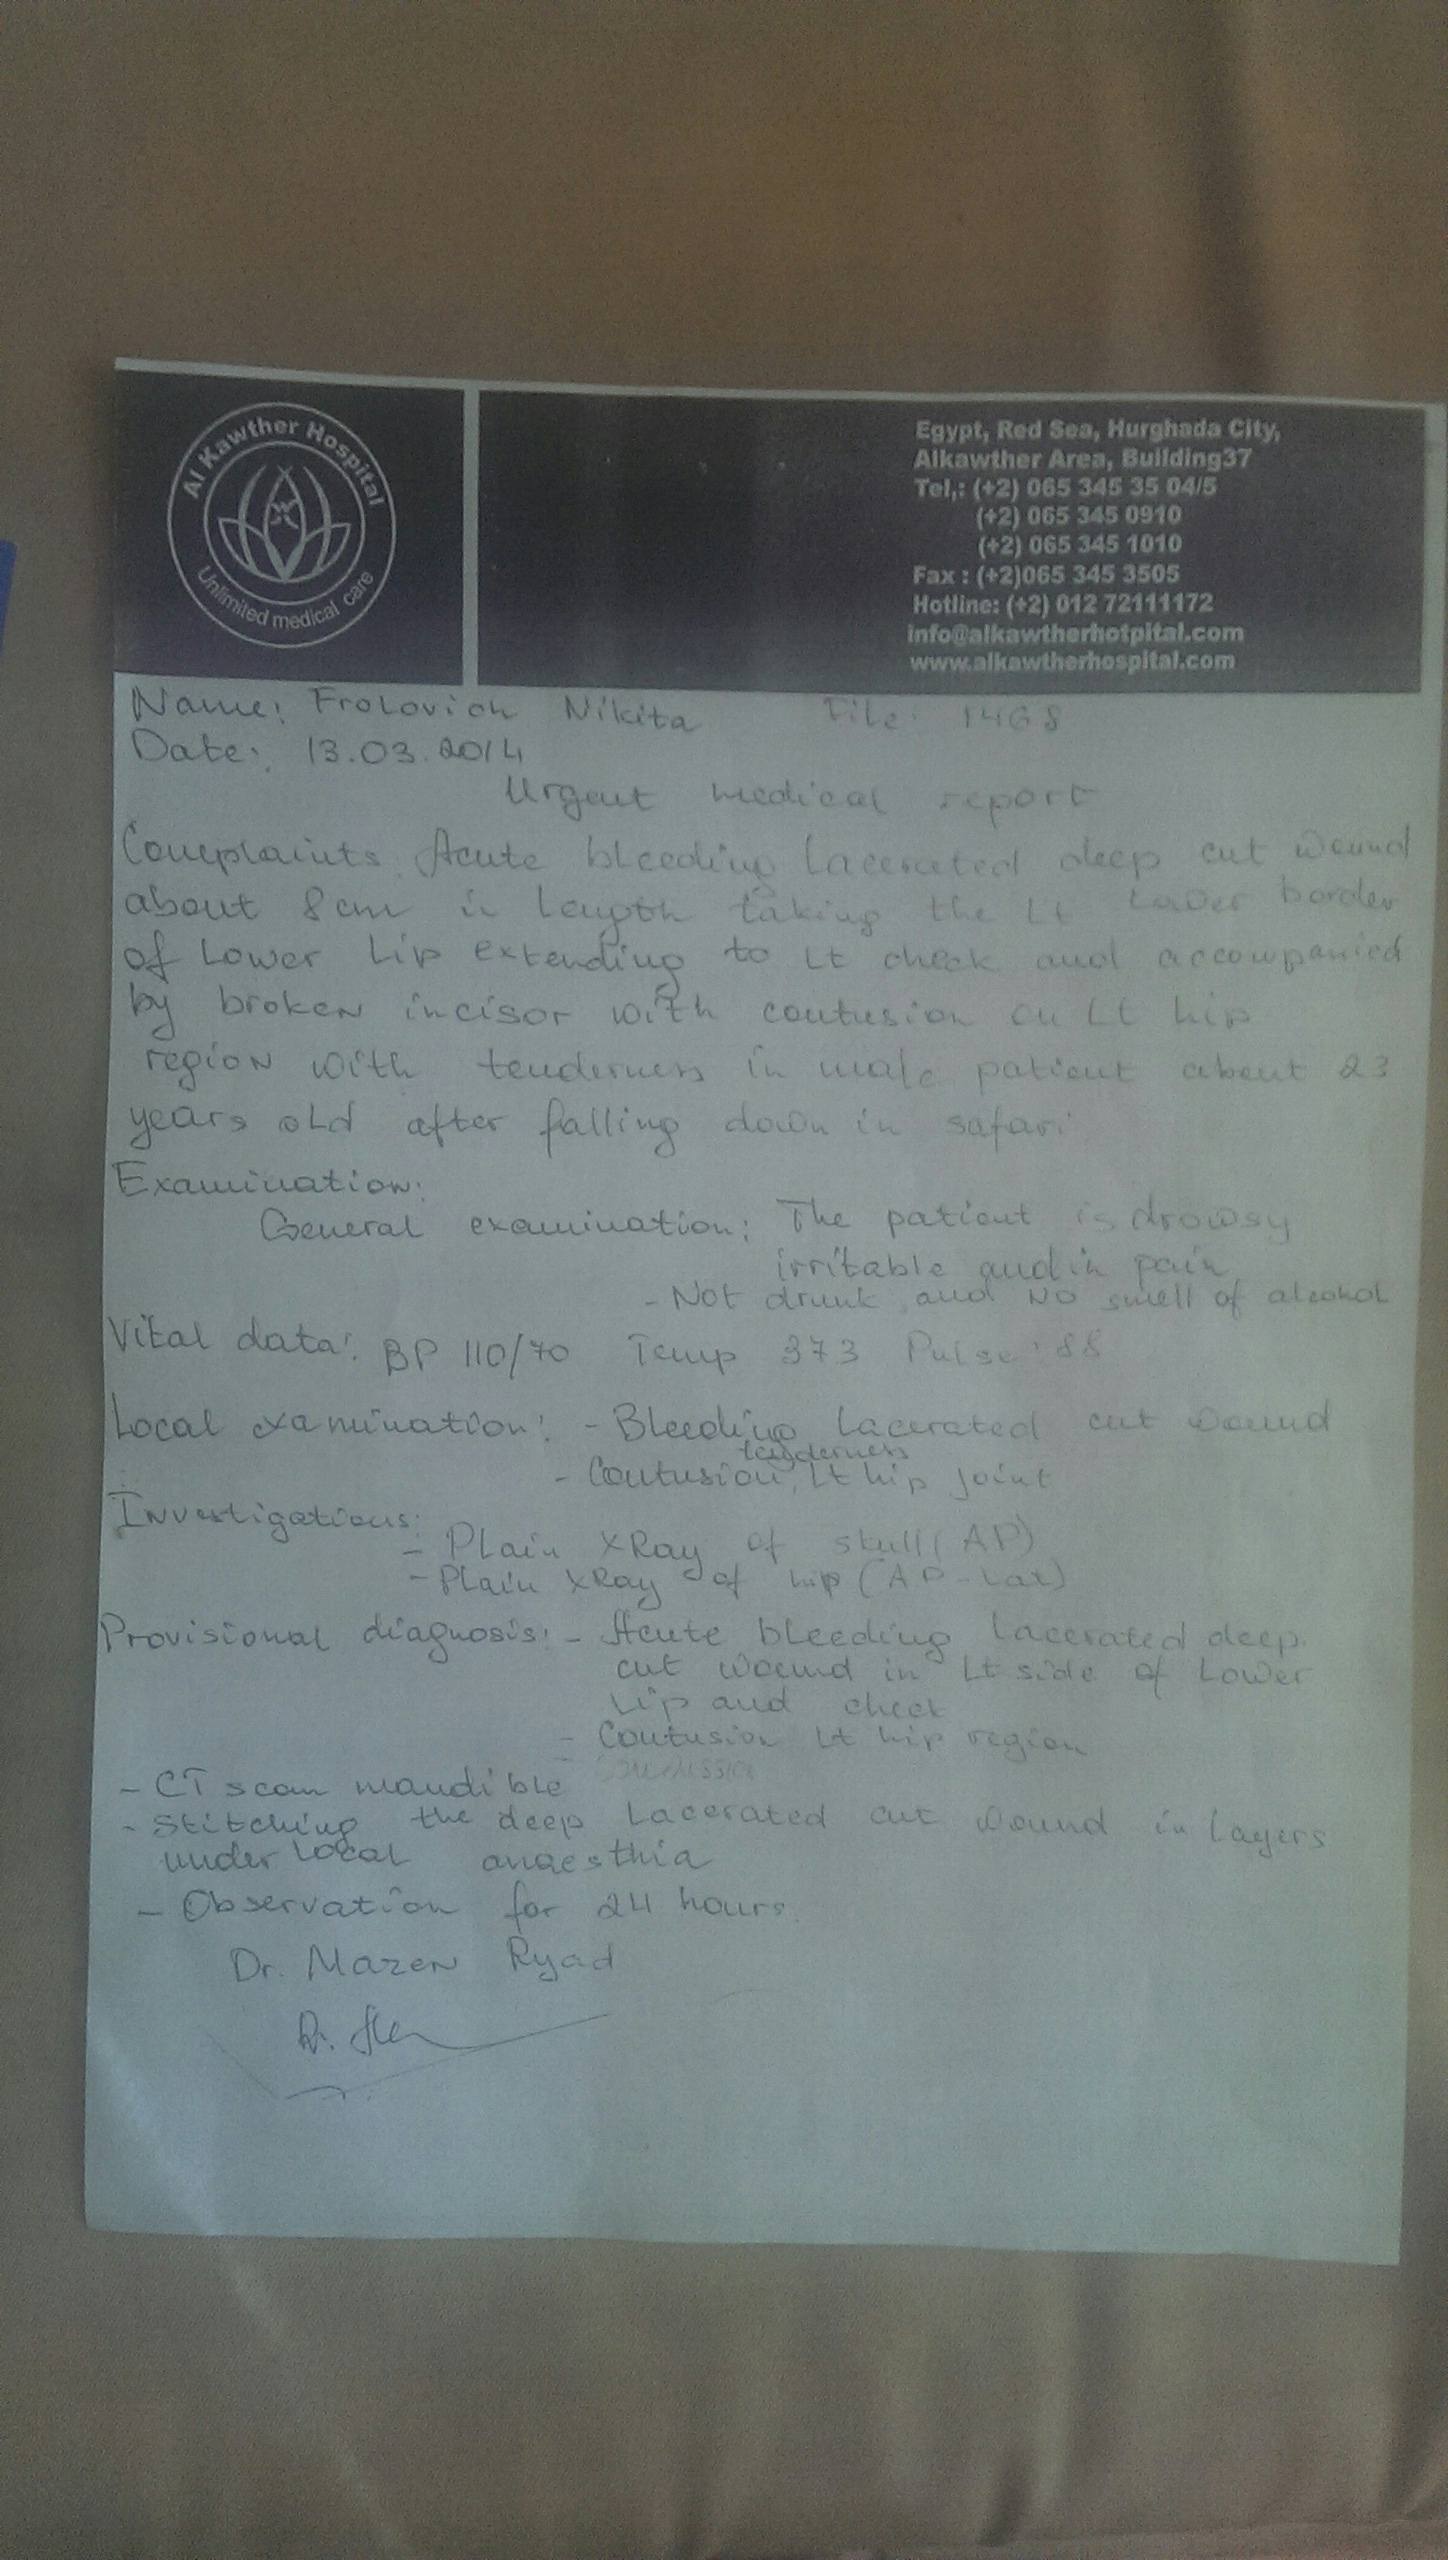 Al Kawther Hospital
Unlimited medical care
Egypt, Red Sea, Hurghada City,
Alkawther Area, Building37
Tel,: (+2) 065 345 35 04/5
(+2) 065 345 0910
(+2) 065 345 1010
Fax : (+2)065 345 3505
Hotline: (+2) 012 72111172
info@alkawtherhotpital.com
www.alkawtherhospital.com
Name: Frolovich Nikita File: 1468
Date: 13.03.2014
Urgent medical report
Complaints: Acute bleeding lacerated deep cut wound
about 8cm in length taking the Lt lower border
of lower lip extending to Lt cheek and accompanied
by broken incisor with contusion on Lt hip
region with tenderness in male patient about 23
years old after falling down in safari
Examination:
General examination: The patient is drowsy
irritable and in pain
- Not drunk and no smell of alcohol
Vital data: BP 110/70 Temp 373 Pulse: 88
Local examination: - Bleeding lacerated cut wound
tenderness
- Contusion, Lt hip joint
Investigations:
- Plain XRay of skull (AP)
- Plain XRay of hip (AP-Lat)
Provisional diagnosis: - Acute bleeding lacerated deep
cut wound in Lt side of lower
lip and cheek
- Contusion Lt hip region
- CT scan mandible
- Stitching the deep lacerated cut wound in layers
under local anaesthia
- Observation for 24 hours.
Dr. Mazen Ryad